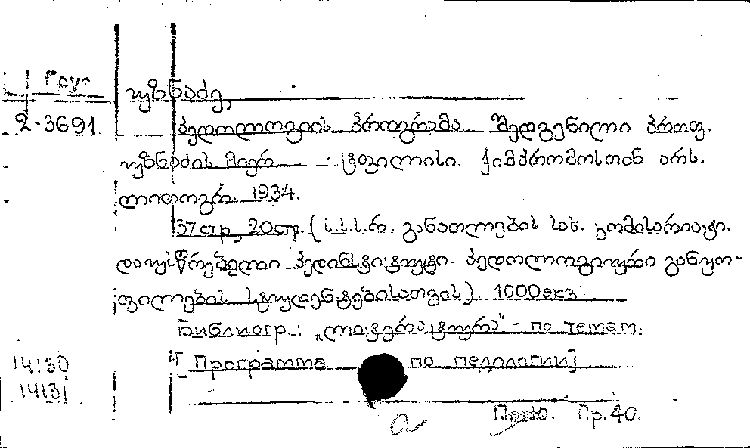 Груз.
უზნაძე,
2-3691.
პედოლოგიის პროგრამა შედგენილი პროფ.
უზნაძის მიერ ტფილისი. ქიმპრომოსთან არს.
ლითოგრ. 1934.
37стр, 20стр. (ს.ს.ს.რ. განათლების სახ. კომისარიატი.
დაუსწრებელი პედინსტიტუტი. პედოლოგიური განყო-
ფილების სტუდენტებისათვის) 1000экз
Библиогр.: „ლიტერატურა" - по темам.
[Программа по педологии]
14130
14131
Пр.40.